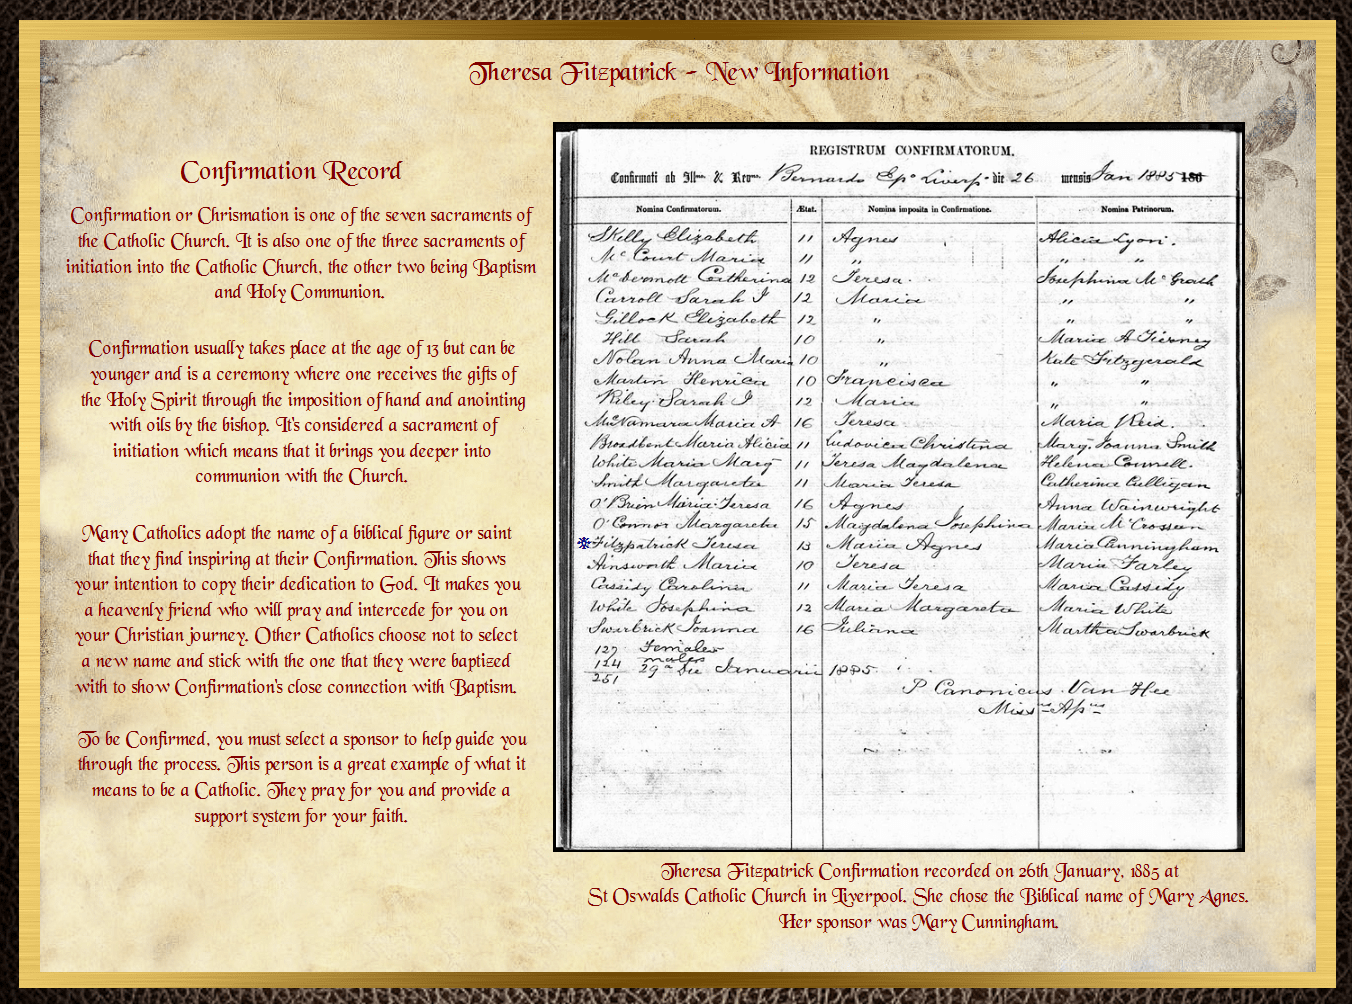 Theresa Fitzpatrick - New Information
Confirmation Record
Confirmation or Chrismation is one of the seven sacraments of
the Catholic Church. It is also one of the three sacraments of
initiation into the Catholic Church, the other two being Baptism
and Holy Communion.
Confirmation usually takes place at the age of 13 but can be
younger and is a ceremony where one receives the gifts of
the Holy Spirit through the imposition of hand and anointing
with oils by the bishop. It's considered a sacrament of
initiation which means that it brings you deeper into
communion with the Church.
Many Catholics adopt the name of a biblical figure or saint
that they find inspiring at their Confirmation. This shows
your intention to copy their dedication to God. It makes you
a heavenly friend who will pray and intercede for you on
your Christian journey. Other Catholics choose not to select
a new name and stick with the one that they were baptized
with to show Confirmation's close connection with Baptism.
To be Confirmed, you must select a sponsor to help guide you
through the process. This person is a great example of what it
means to be a Catholic. They pray for you and provide a
support system for your faith.
REGISTRUM CONFIRMATORUM.
Confirmati ab Illmo. & Revmo. Bernardo Epo Liverp. die 26 mensis Jan 1885 186
Nomina Confirmatorum. Ætat. Nomina imposita in Confirmatione. Nomina Patrinorum.
Skilly Elizabeth 11 Agnes Alicia Lyon.
McCourt Maria 11 " " "
McDermott Catherina 12 Teresa. Josephina McGrath
Carroll Sarah J 12 Maria " "
Gillock Elizabeth 12 " " "
Hill Sarah 10 " Maria A Tierney
Nolan Anna Maria 10 " Kate Fitzgerald
Martin Henrica 10 Francisca " "
Riley Sarah J 12 Maria " "
McNamara Maria A 16 Teresa Maria Reid.
Broadbent Maria Alicia 11 Ludovica Christina Mary Joanna Smith
White Maria Mary 11 Teresa Magdalena Helena Connell.
Smith Margareta 11 Maria Teresa Catherina Culligan
O'Brien Maria Teresa 16 Agnes Anna Wainwright
O'Connor Margareta 15 Magdalena Josephina Maria McCrossen
Fitzpatrick Teresa 13 Maria Agnes Maria Cunningham
Ainsworth Maria 10 Teresa Maria Farley
Cassidy Carolina 11 Maria Teresa Maria Cassidy
White Josephina 12 Maria Margareta Maria White
Swarbrick Joanna 16 Juliana Martha Swarbrick
127 Females
124 males
251 29a Die Januarii 1885.
P Canonicus Van Hee
Miss us Ap us
Theresa Fitzpatrick Confirmation recorded on 26th January, 1885 at
St Oswalds Catholic Church in Liverpool. She chose the Biblical name of Mary Agnes.
Her sponsor was Mary Cunningham.